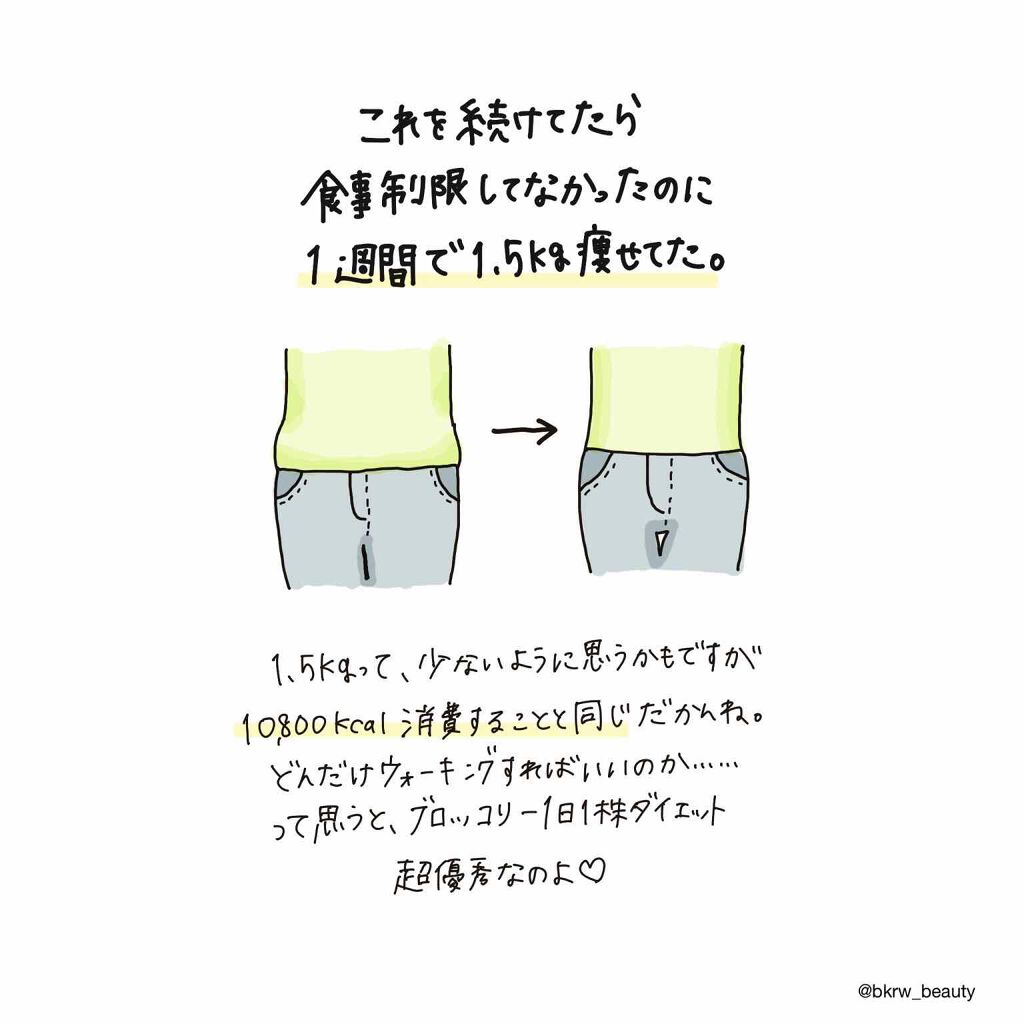 これを続けてたら
食事制限してなかったのに
1週間で1.5kg痩せてた。
1.5kgって、少ないように思うかもですが
10,800kcal消費することと同じだかんね。
どんだけウォーキングすればいいのか……
って思うと、ブロッコリー1日1株ダイエット
超優秀なのよ♡
@bkrw_beauty